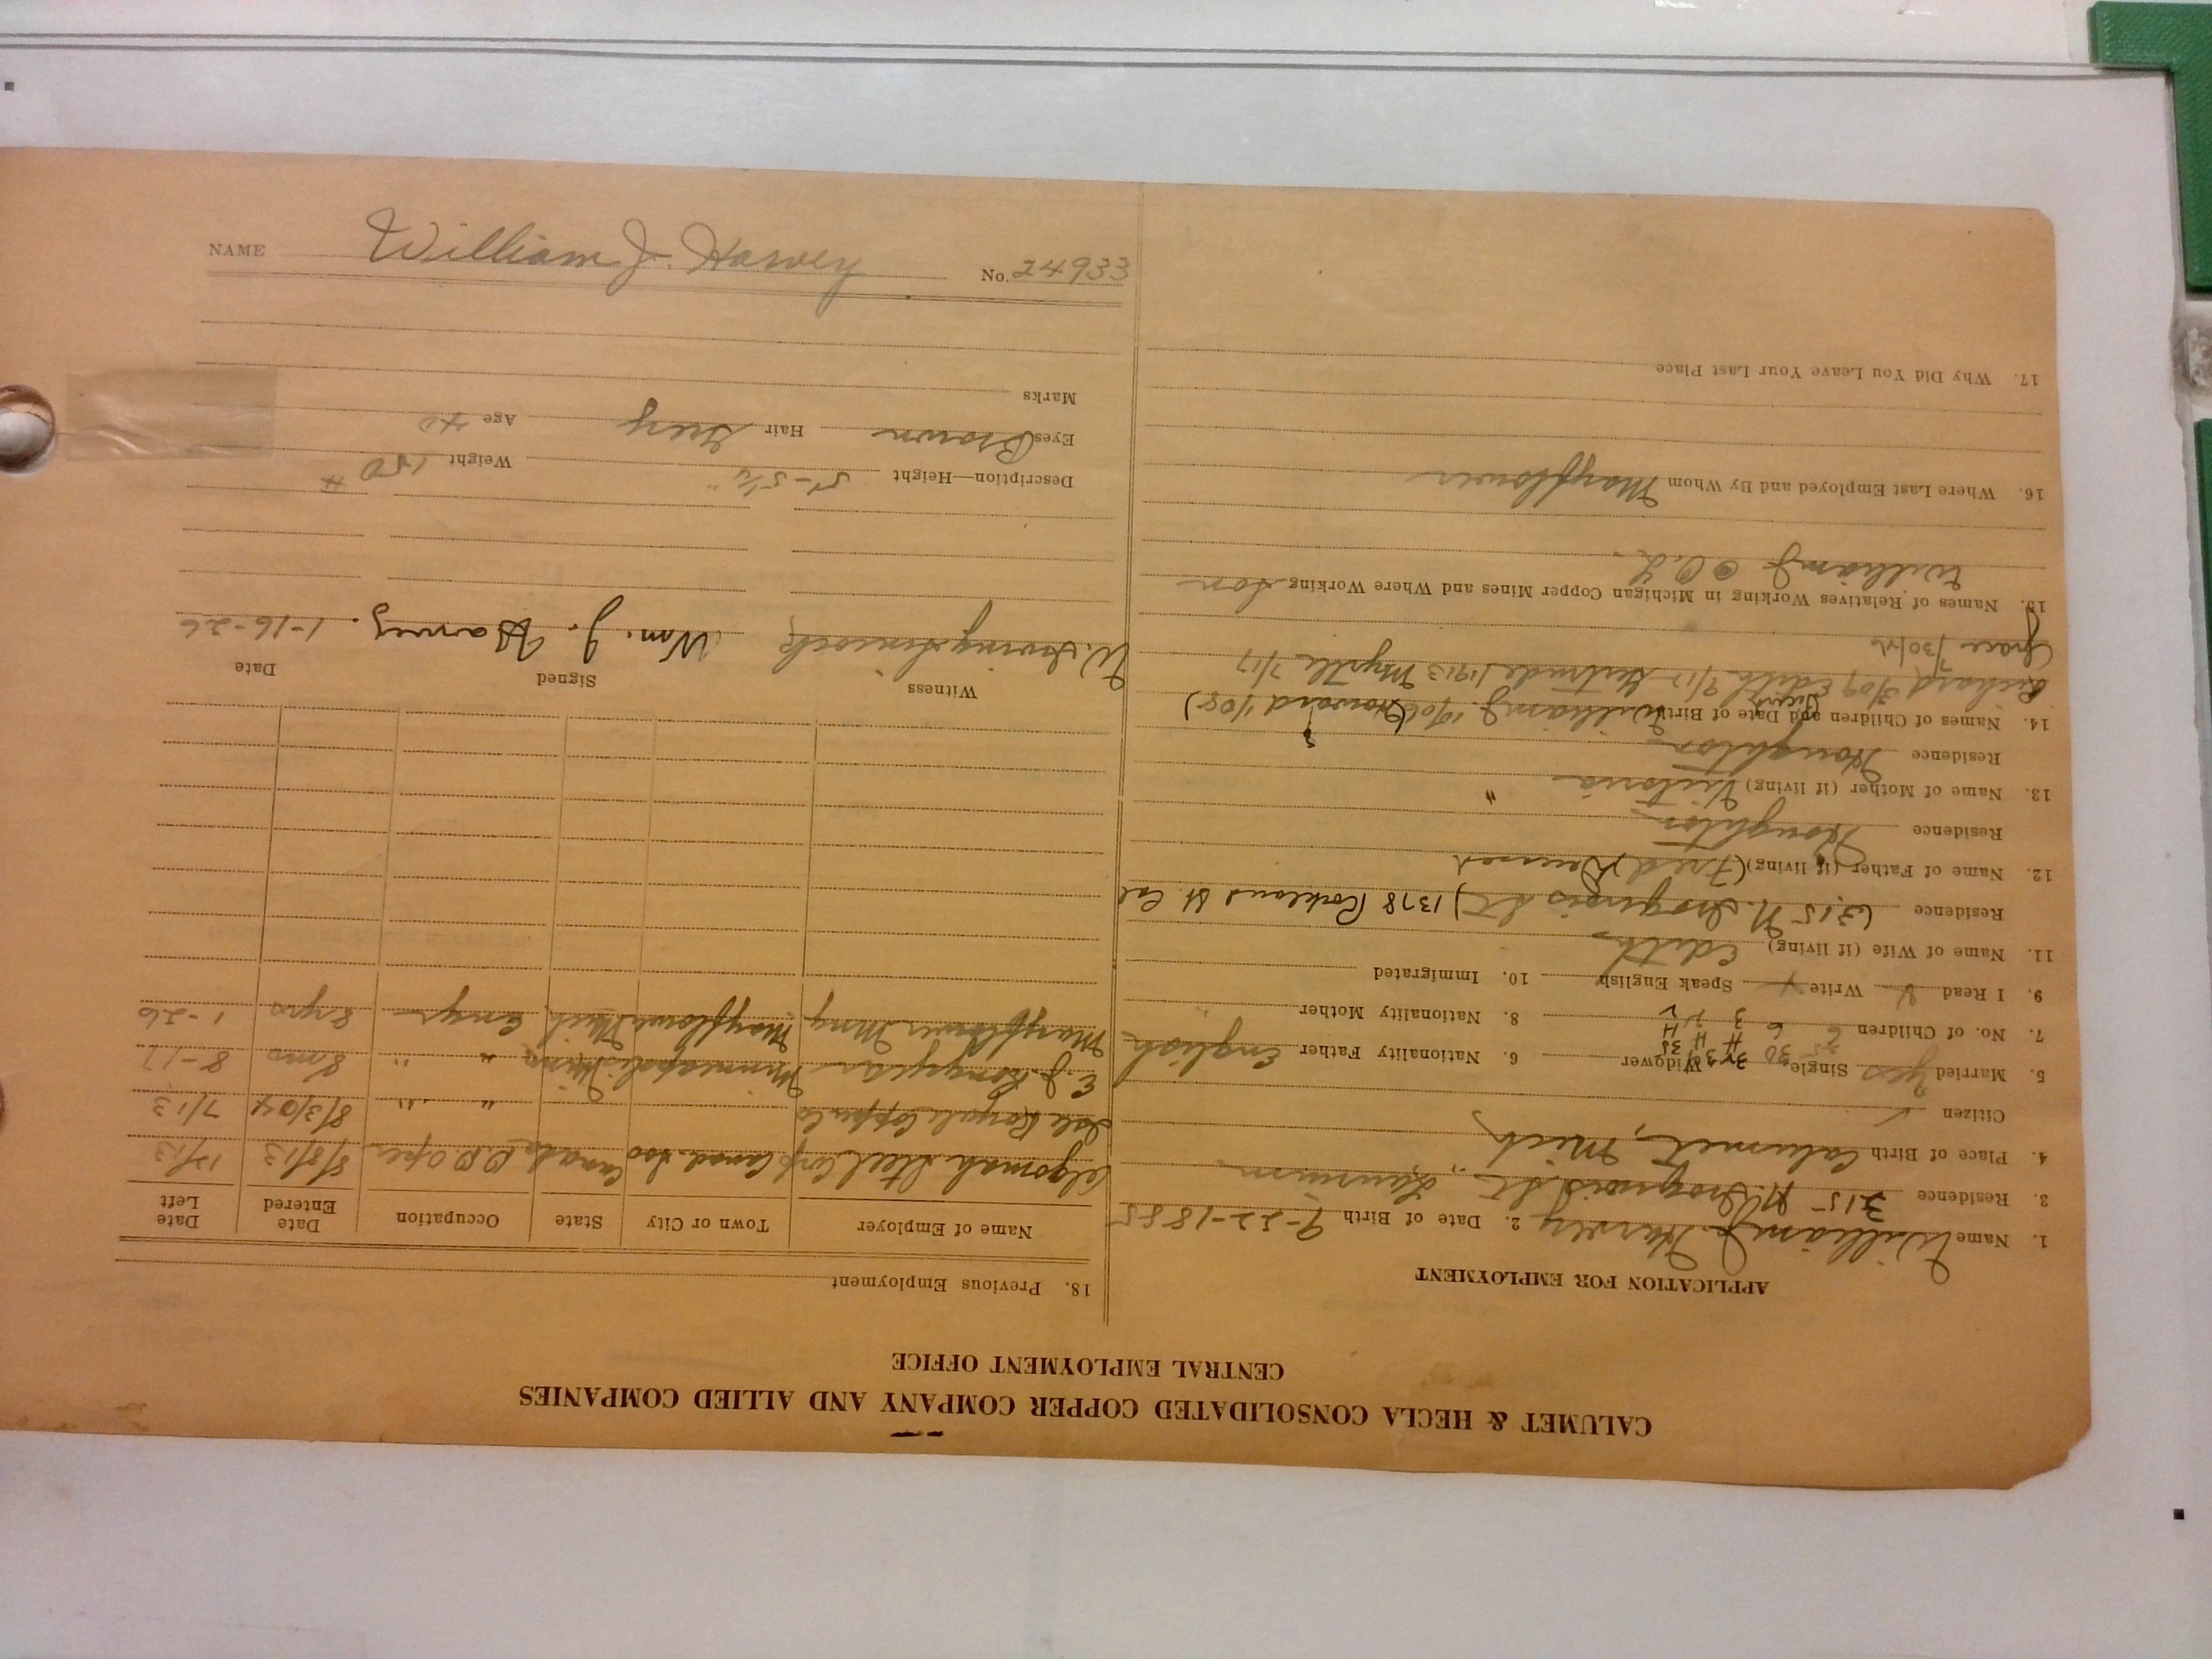 NAME William J. Harvey No. 24933
CALUMET & HECLA CONSOLIDATED COPPER COMPANY AND ALLIED COMPANIES
CENTRAL EMPLOYMENT OFFICE
APPLICATION FOR EMPLOYMENT
1. Name William J. Harvey 2. Date of Birth 9-22-1885
3. Residence 315 N. Iroquois St., Laurium
4. Place of Birth Calumet, Mich
Citizen ✓
5. Married Yes Single Widower 6. Nationality Father English
7. No. of Children 6 6 3 8. Nationality Mother "
9. I Read Write Speak English 10. Immigrated
11. Name of Wife (if living) Edith
Residence (315 N. Iroquois St) 1378 Rockland St. Cal
12. Name of Father (if living) (Fred) Deceased
Residence Houghton
13. Name of Mother (if living) Victoria "
Residence Houghton
14. Names of Children and Date of Birth William J. (Howard 1/08)
Richard 3/09 Edith 9/12 Gertrude 1/1913 Myrtle 7/17
Grace 7/30/26
15. Names of Relatives Working in Michigan Copper Mines and Where Working Son
William J @ O.L.
16. Where Last Employed and By Whom Mayflower
17. Why Did You Leave Your Last Place
18. Previous Employment
Name of Employer Town or City State Occupation Date Entered Date Left
Algomah Steel Corp Canad. Soo Canada D.D. Oper 8/8/13 12/13
Isle Royale Copper Co " " " 8/3/04 7/13
E. J. Longyear Minneapolis Minn " " 8 mo 8-17
Mayflower Mng Mayflower Mich 8 yrs 1-26
Witness Signed Date
Wm. J. Harvey. 1-16-26
Description—Height 5'-5½" Weight 150 #
Eyes Brown Hair Grey Age 40
Marks